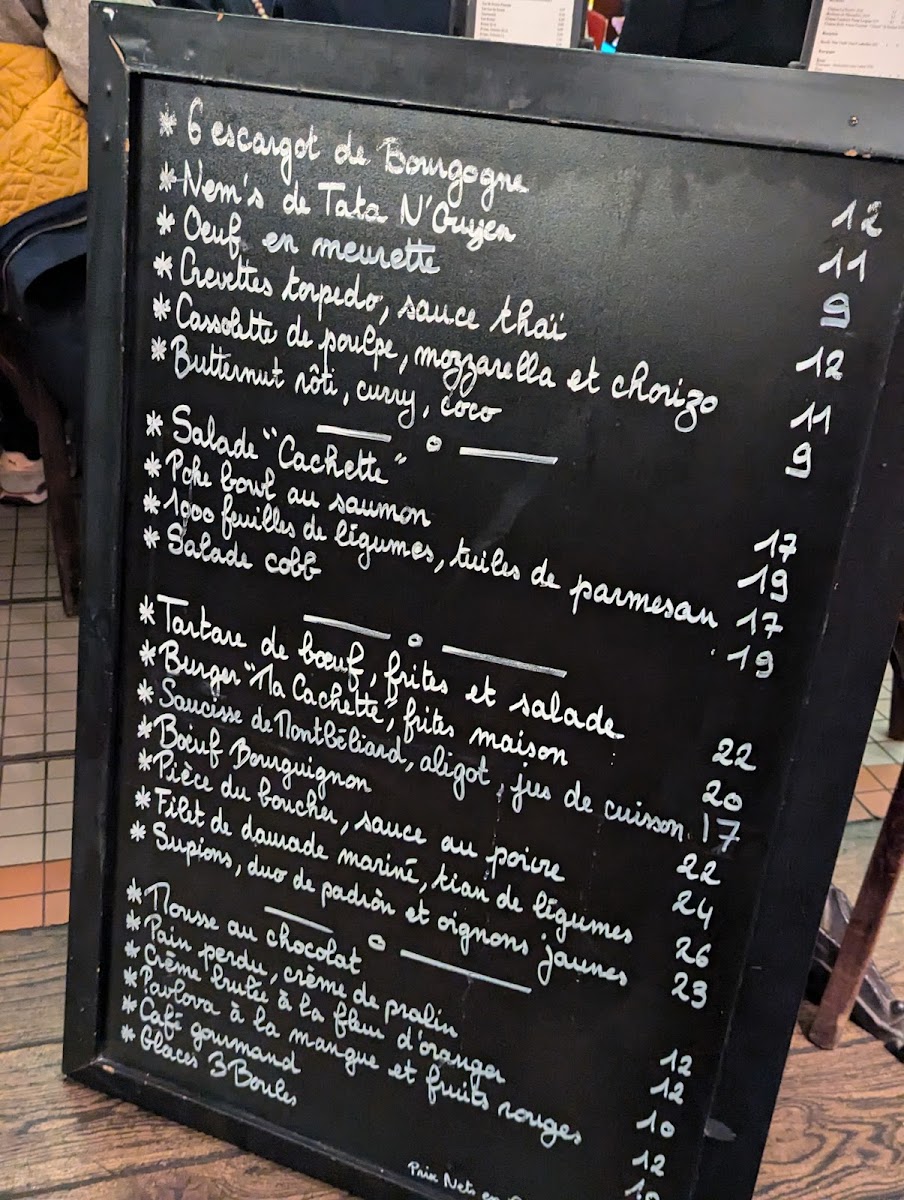 * 6 escargot de Bourgogne 12
* Nem's de Tata N'Guyen 11
* Oeuf en meurette 9
* Crevettes torpedo, sauce thaï 12
* Cassolette de poulpe, mozzarella et chorizo 11
* Butternut rôti, curry, coco 9
* Salade "Cachette" 17
* Poke bowl au saumon 19
* 1000 feuilles de légumes, tuiles de parmesan 17
* Salade cobb 19
* Tartare de bœuf, frites et salade 22
* Burger "Ma Cachette", frites maison 20
* Saucisse de Montbéliard, aligot, jus de cuisson 17
* Bœuf Bourguignon 22
* Pièce du boucher, sauce au poivre 24
* Filet de daurade mariné, tian de légumes 26
* Supions, duo de padròn et oignons jaunes 23
* Mousse au chocolat 12
* Pain perdu, crème de pralin 12
* Crème brulée à la fleur d'oranger 10
* Pavlova à la mangue et fruits rouges 12
* Café gourmand 10
* Glaces 3 Boules
Prix Nets en